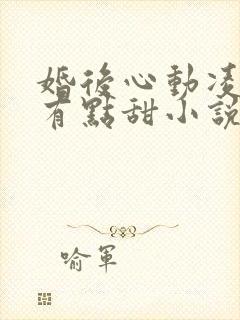 婚後心動凌
有點甜小說
喻軍